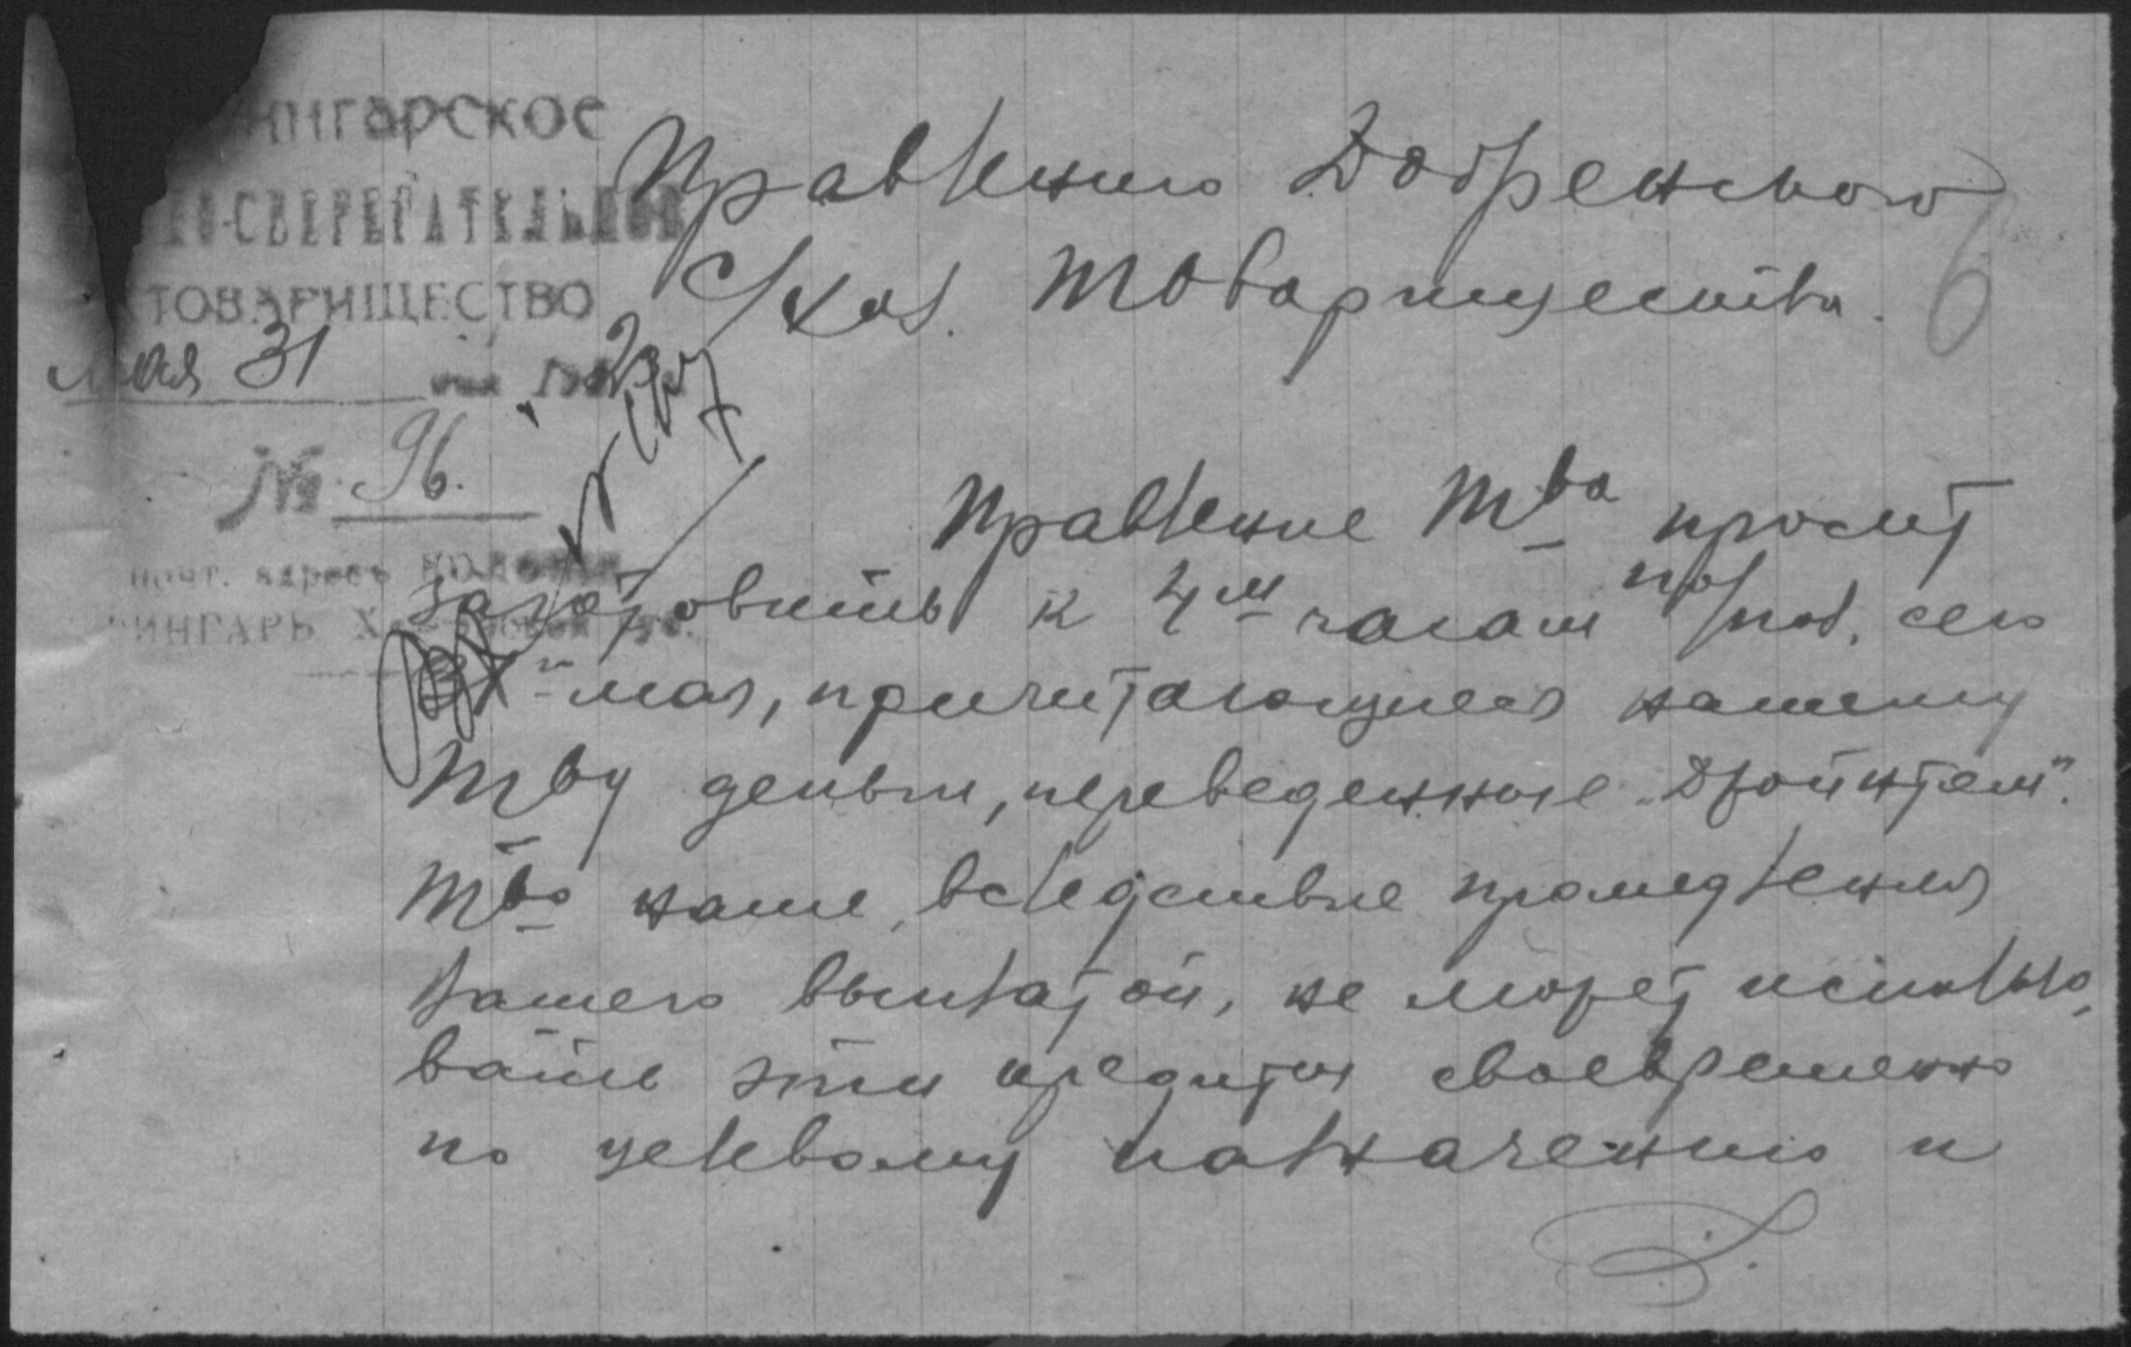 нгарское
-СБЕРЕГАТЕЛЬНОЕ
ТОВАРИЩЕСТВО
мая 31
№ 96.
почт. адресъ колония
ИНГАРЬ
Правлению Добренского
С/хоз. Товарищества.
6
Правление Т-ва просит
заготовить к 4м часам по/пол. сего
мая, причитающиеся нашему
Т-ву деньги, переведенные „Джойнтом".
Т-во наше, вследствие промедления
Вашего выплатой, не может использо-
вать эти кредиты своевременно
по целевому назначению и